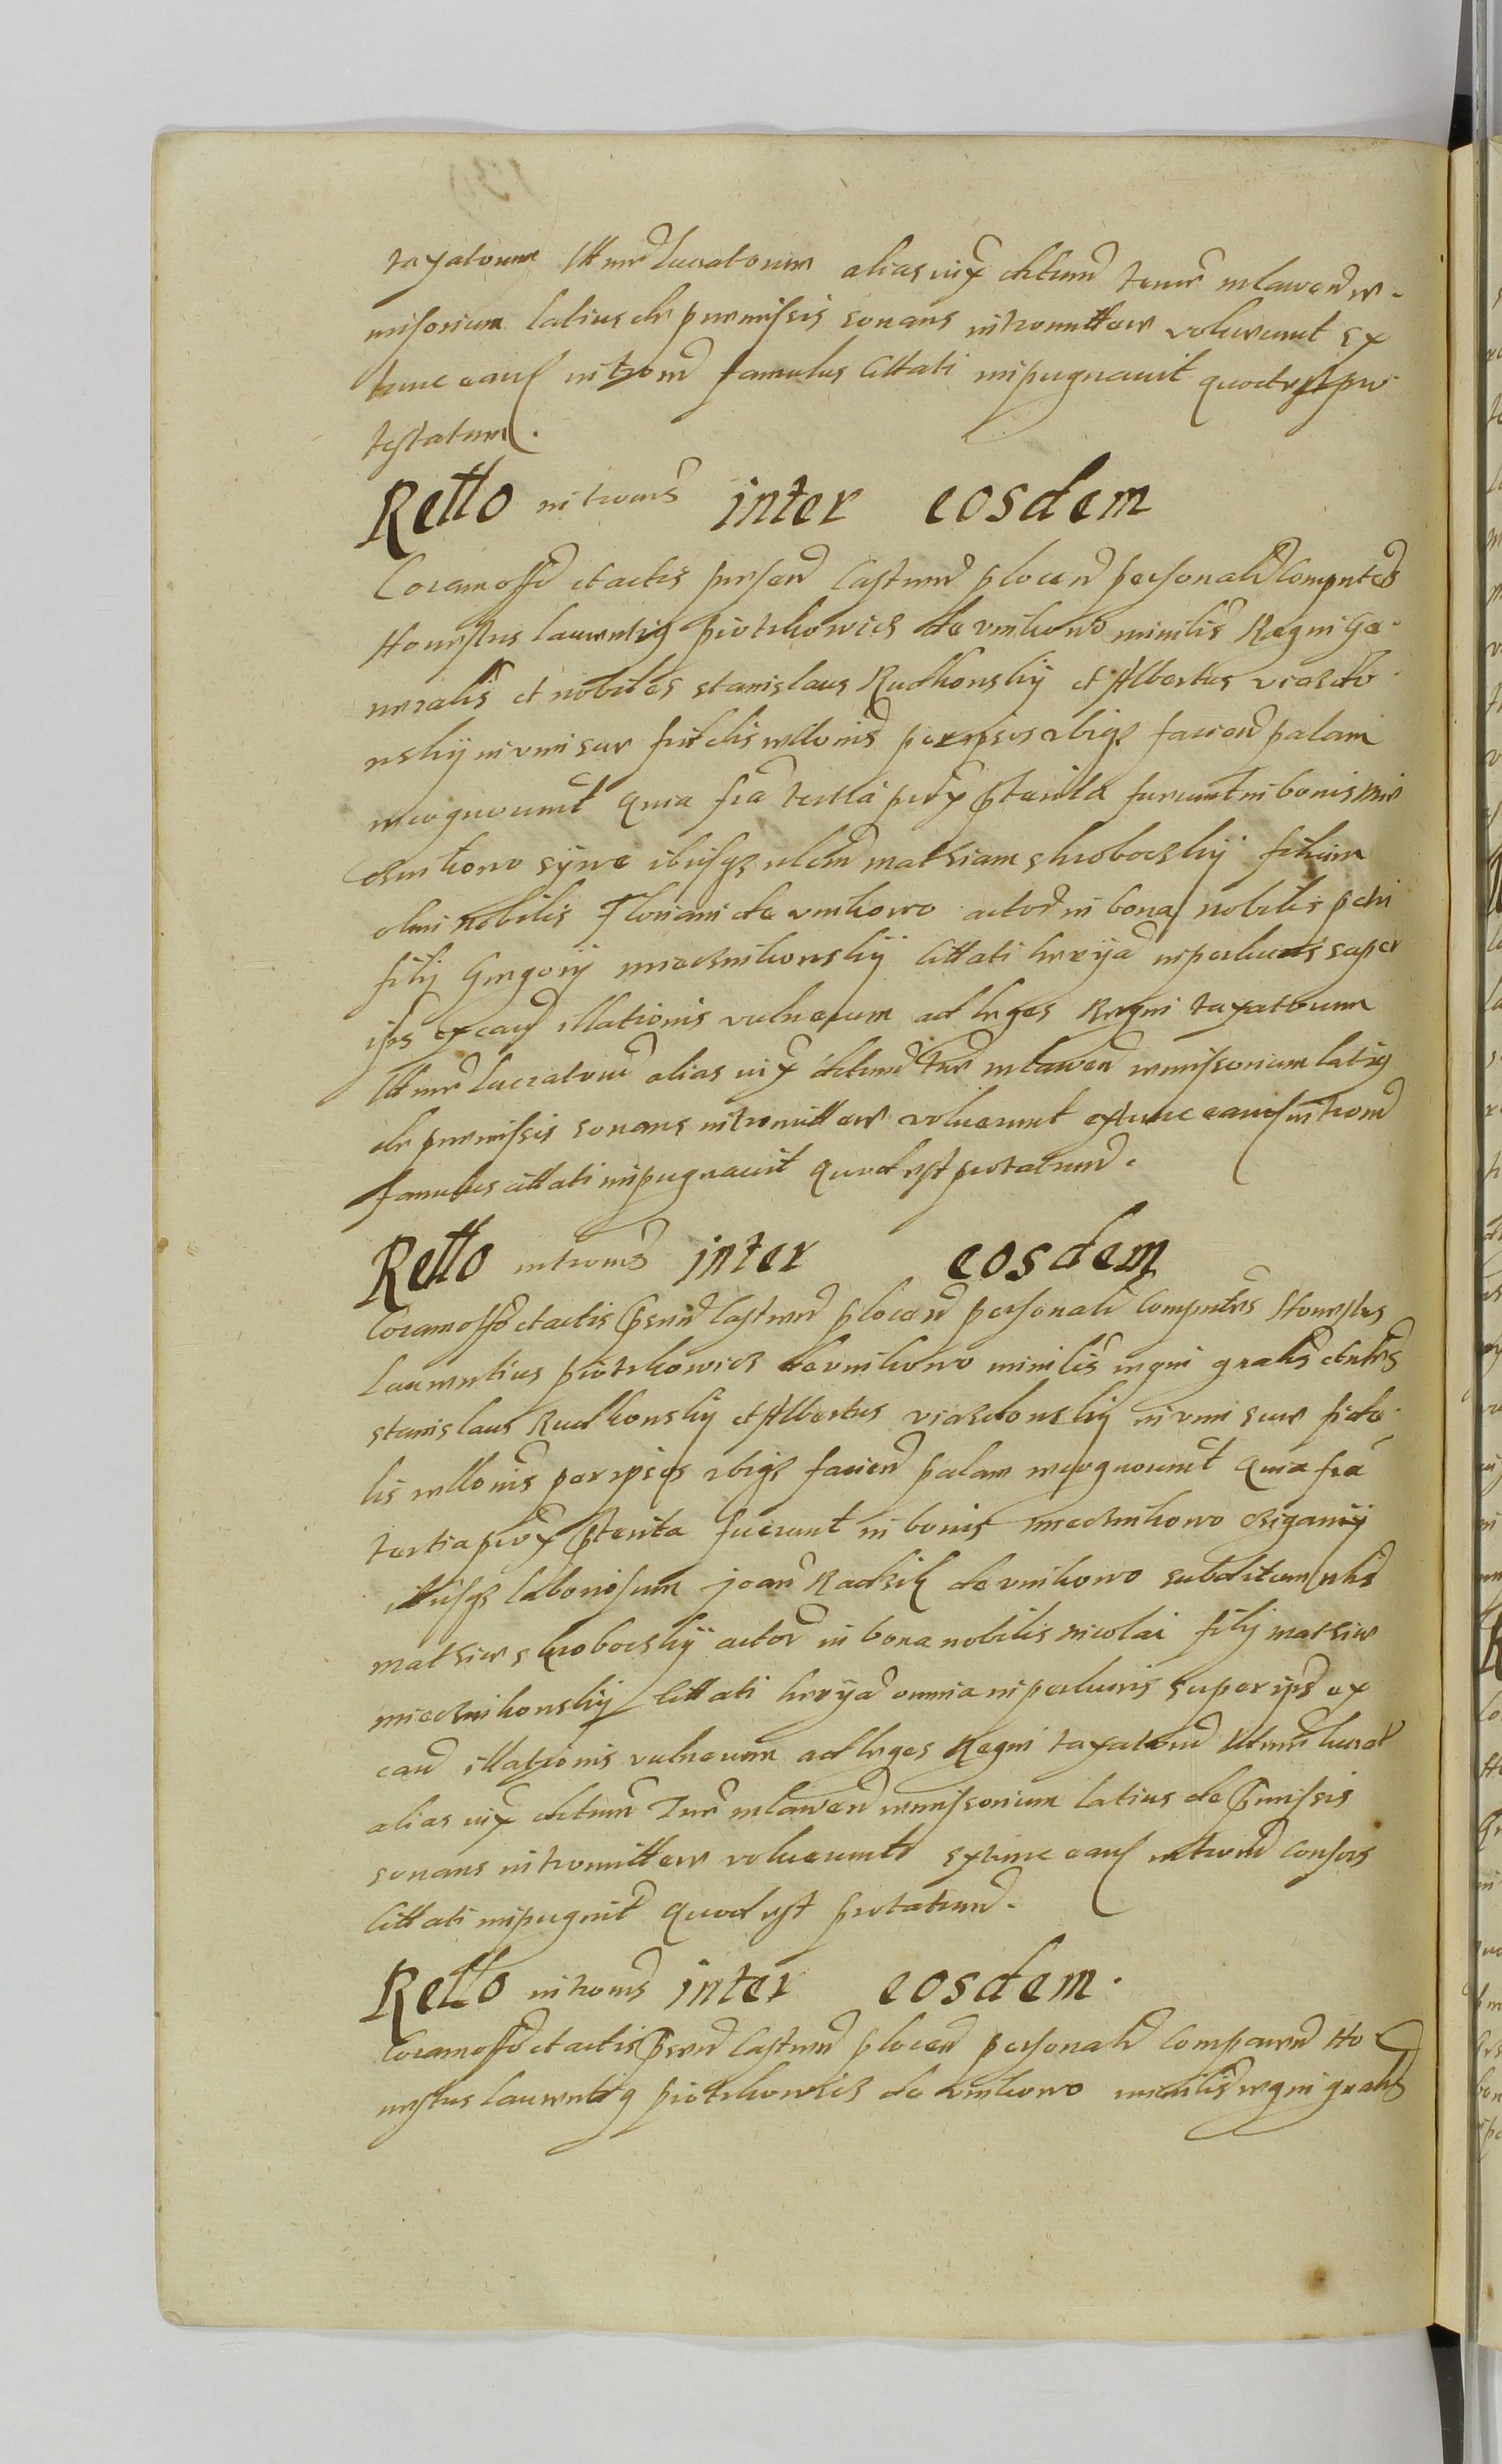 taxatorum lucratorum alias iux decretum mlawen re-
missorium latius de premissis sonans intromittere voluerunt Ex
tunc eans introm famulus Cittati impugnauit quod est pro
testatum.
Retto introm inter eosdem
Coram offo et actis presen Castren plocen personali Comparen
Honestus laurentig piotrkowicz de vnikowo minilis Regni Ge-
neralis et nobiles stanislaus Rudkonskÿ et Albertus
nskÿ in vim suae fidelis rellonis per ipsos ibiqz facien palam
recognouerunt Quia fra tertia prox pterita fuerunt in bonis mie
cznikowo sÿne ibiqz nlem mathiam skroboczkÿ filium
olim nobilis Floriani de vnikowo actor in bona nobilis petri
filÿ Gregorÿ miecznikonskÿ Cittati super
ipis ex cau illationis vulnerum ad leges Regni taxatorum
lucratorum alias iux decretum mlawen remissorium latig
de premissis sonans intromittere voluerunt extunc eans introm
famulus cittati impugnauit quod est protatum.
Retto introm inter eosdem
Coram offo et actis psen Castren plocen personali Comparens Honestus
laurentius piotrkowicz de vnikowo minilis regni gralis et nbles
stanislaus Rudkonskÿ et Albertus in vim suae fide-
lis rellonis per ipsos ibiqz facien palam recognouerunt Quia fra
tertia prox pterita fuerunt in bonis miecznikowo cziganÿ
laboriosum joan Radzik de vnikowo subditum nlis
mathiae skroboczkÿ actor in bona nobilis nicolai filÿ mathiae
miecznikonskÿ Cittati omnia super ipis ex
cau illationis vulnerum ad leges Regni taxatorum lucrat
alias iux decretum mlawen remissorium latius de pmissis
sonans intromittere voluerunt extunc eans introm Consors
Cittati impugnit quod est protatum.
Retto introm inter eosdem.
Coram offo et actis psen Castren plocen personali Comparen Ho
nestus laurentig piotrkowicz de vnikowo minilis regni gralis